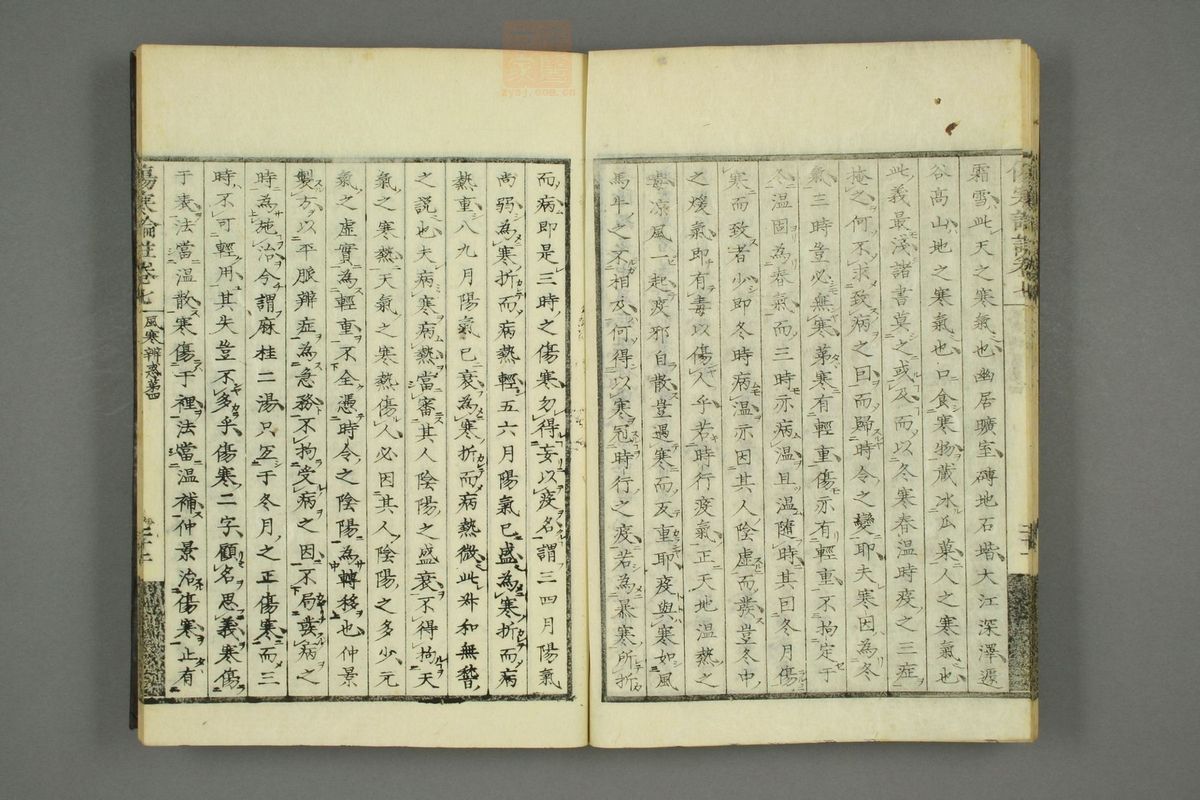 霜雪此天之寒氣也幽居曠室磚地石墖大江深澤邃
谷高山地之寒氣也口食寒物藏冰瓜菓人之寒氣也
此義最淺諸書莫之或及而以冬寒春温時疫之三症
掩之何不求致病之因而歸時令之變耶夫寒因為冬
氣三時豈必無寒第寒有輕重傷亦有輕重不拘定于
冬温固為春氣而三時亦病温且温隨時其因冬月傷
寒而致者少即冬時病温亦因其人陰虛而發豈冬中
之煖氣即有毒以傷人乎若時行疫氣正天地温熱之
毒凉風一起疫邪自散豈遇寒而反重耶疫與寒如風
馬牛之不相及何得以寒冠時行之疫若為暴寒所折
而病即是三時之傷寒勿得妄以疫名謂三四月陽氣
尚弱為寒折而病熱輕五六月陽氣已盛為寒折而病
熱重八九月陽氣已衰為寒折而病熱微此叔和無稽
之說也夫病寒病熱當審其人陰陽之盛衰不得拘天
氣之寒熱天氣之寒熱傷人必因其人陰陽之多少元
氣之虛實為輕重不全憑時令之陰陽為轉移也仲景
製方以平脈辨症為急務不拘受病之因不局發病之
時為施治今謂麻桂二湯只宜于冬月之正傷寒而三
時不可輕用其失豈不多乎傷寒二字顧名思義寒傷
于表法當温散寒傷于裡法當温補仲景治傷寒止有
傷寒論註卷七
風寒辨惑第四
二十一
zysj.com.cn